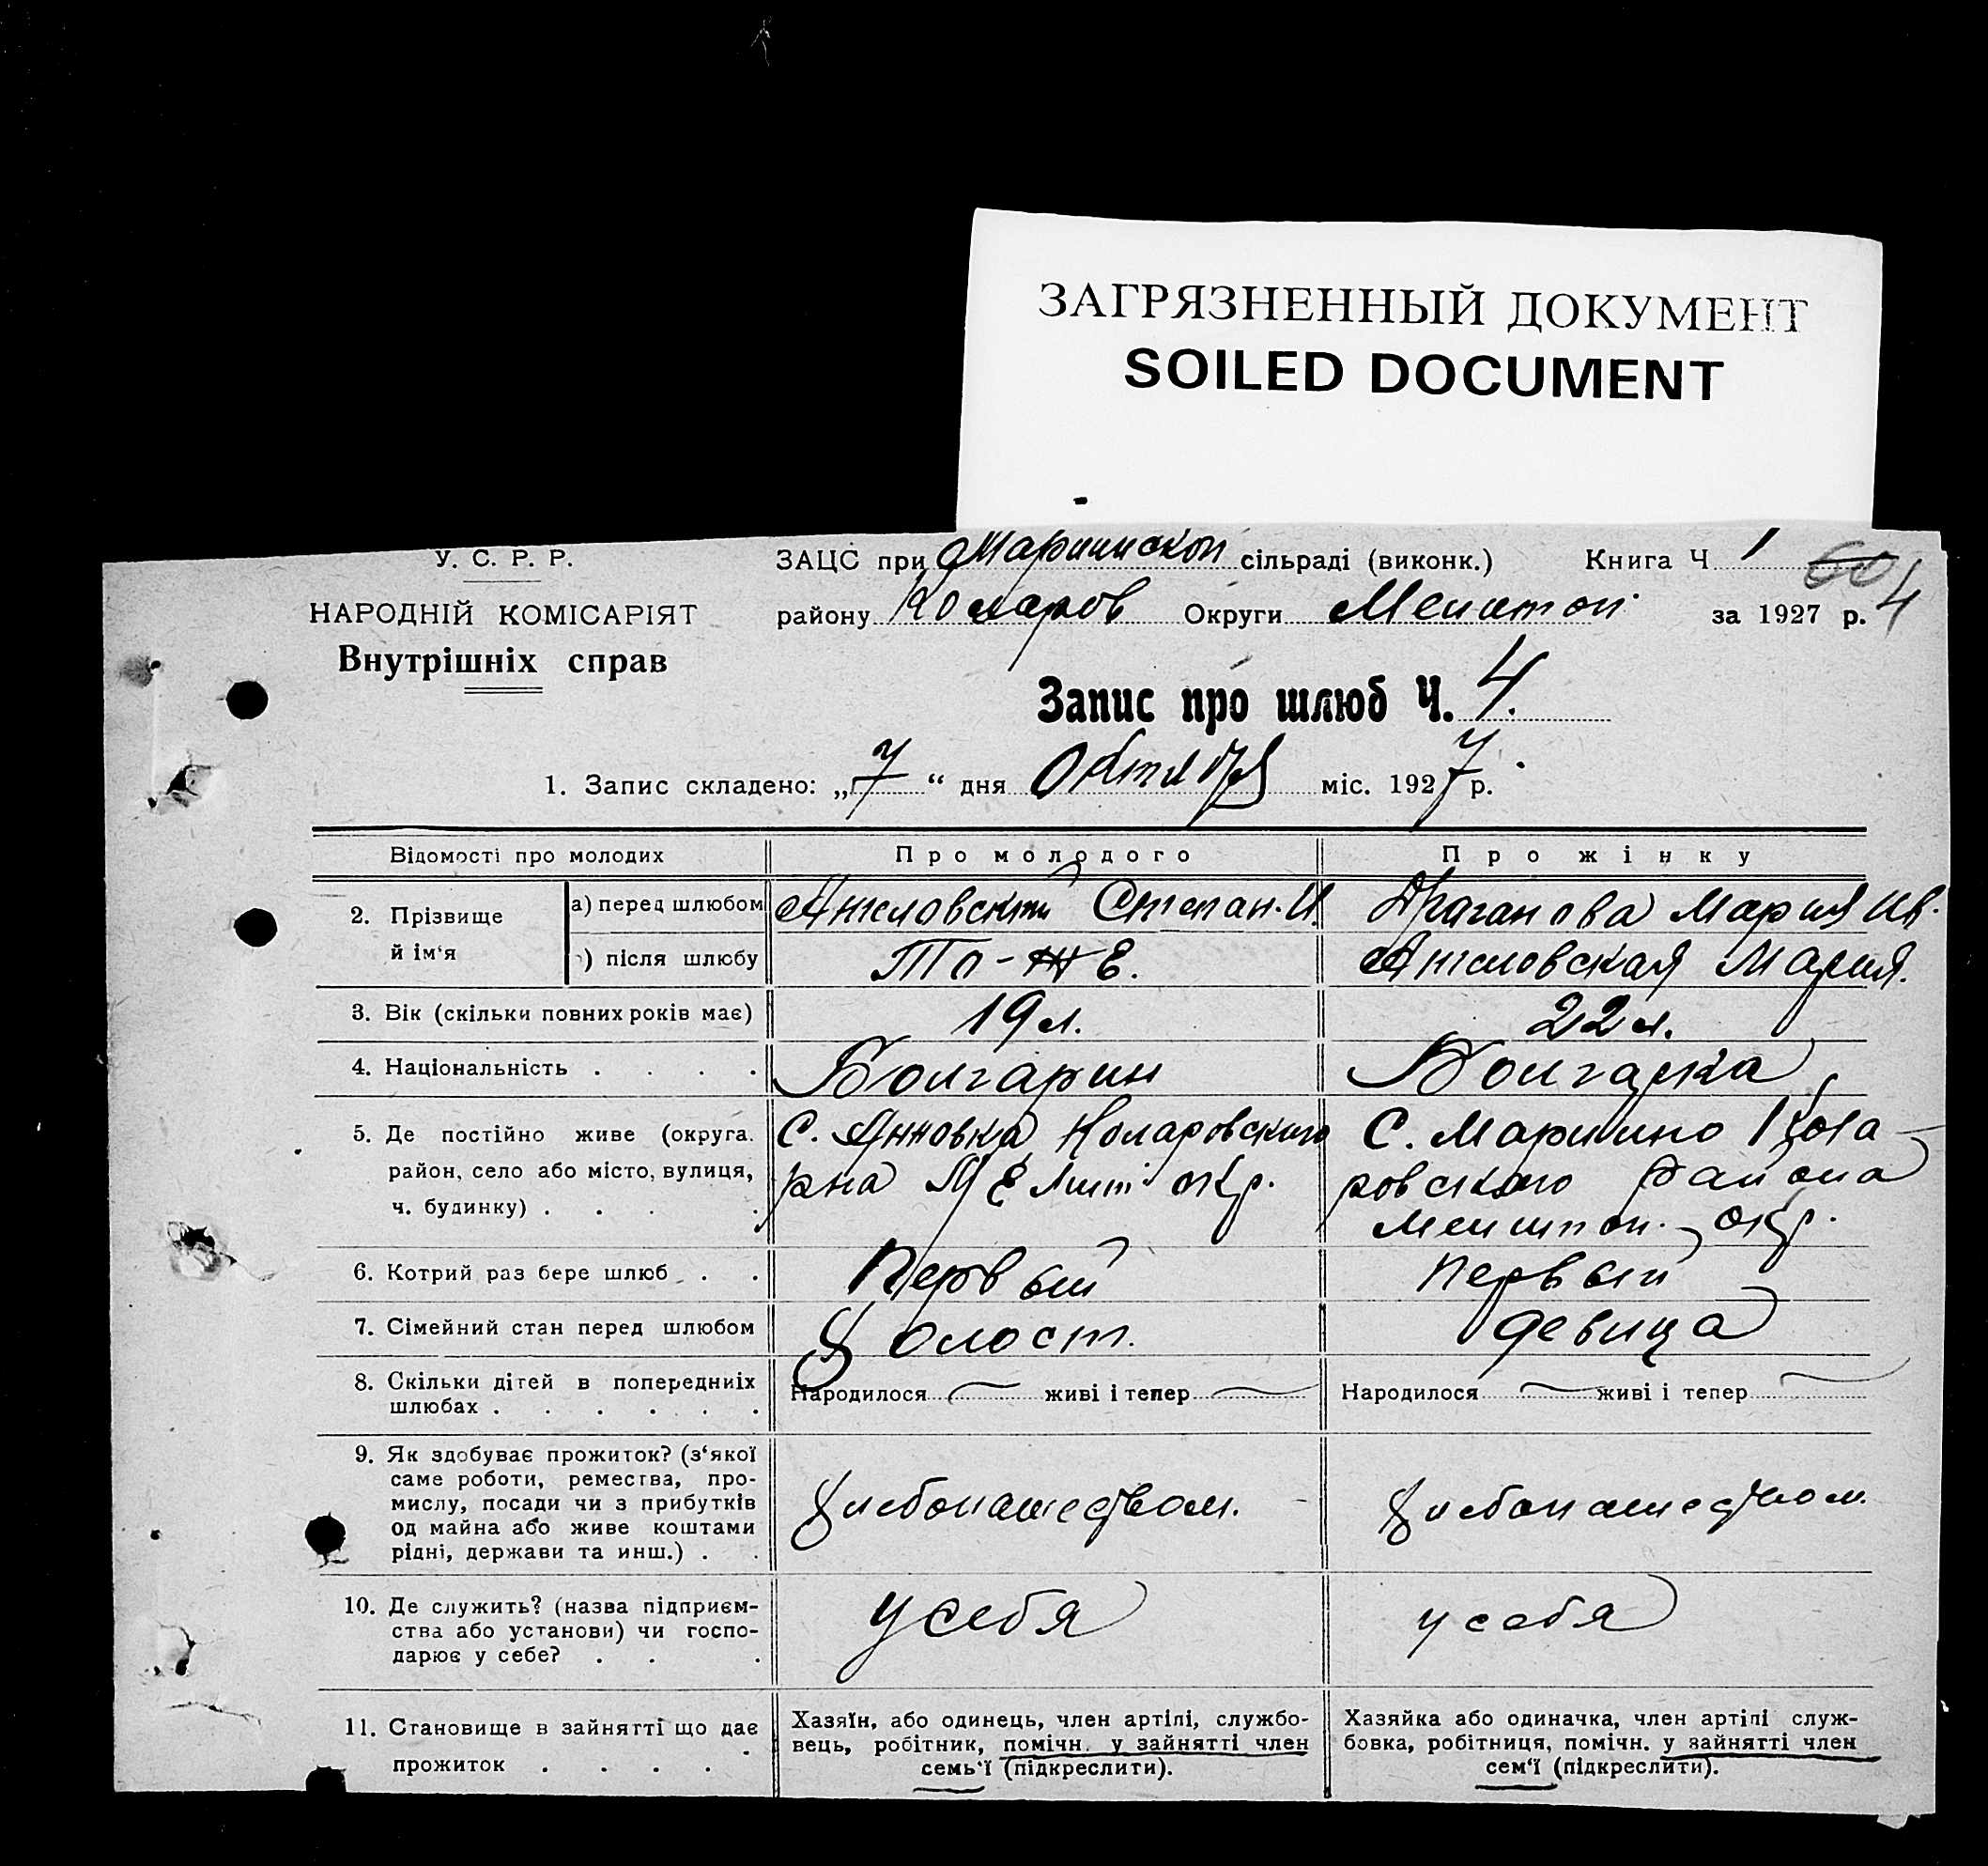 ЗАГРЯЗНЕННЫЙ ДОКУМЕНТ
SOILED DOCUMENT
У. С. Р. Р.
НАРОДНІЙ КОМІСАРІЯТ
Внутрішніх справ
ЗАЦС при Мариинской сільраді (виконк.) Книга Ч 1
району Коларов Округи Мелитоп. за 1927 р. 4
Запис про шлюб Ч. 4.
1. Запис складено: „7“ дня Октября міс. 1927 р.
Відомості про молодих
Про молодого
Про жінку
2. Прізвище й ім‘я
а) перед шлюбом
Ангеловский Степан. И.
Драганова Мария Ив.
) після шлюбу
То-же.
Ангеловская Мария.
3. Вік (скільки повних років має)
19 л.
22 л.
4. Національність . . . .
Болгарин
Болгарка
5. Де постійно живе (округа.
район, село або місто, вулиця,
ч. будинку) . . . .
С. Анновка Коларовского
рна Мелит окр.
С. Мариино Кола-
ровского района
Мелитоп. окр.
6. Котрий раз бере шлюб . .
Первый
Первый
7. Сімейний стан перед шлюбом
Холост.
девица
8. Скільки дітей в попередніх
шлюбах . . . . . .
Народилося — живі і тепер —
Народилося — живі і тепер —
9. Як здобуває прожиток? (з‘якої
саме роботи, ремества, про-
мислу, посади чи з прибутків
од майна або живе коштами
рідні, держави та инш.) . .
Хлебопашеством.
Хлебопашеством.
10. Де служить? (назва підприєм-
ства або установи) чи госпо-
дарює у себе? . . .
у себя
у себя
11. Становище в зайнятті що дає
прожиток . . . . .
Хазяїн, або одинець, член артілі, службо-
вець, робітник, помічн. у зайнятті член
семь‘ї (підкреслити).
Хазяйка або одиначка, член артілі служ-
бовка, робітниця, помічн. у зайнятті член
сем‘ї (підкреслити).